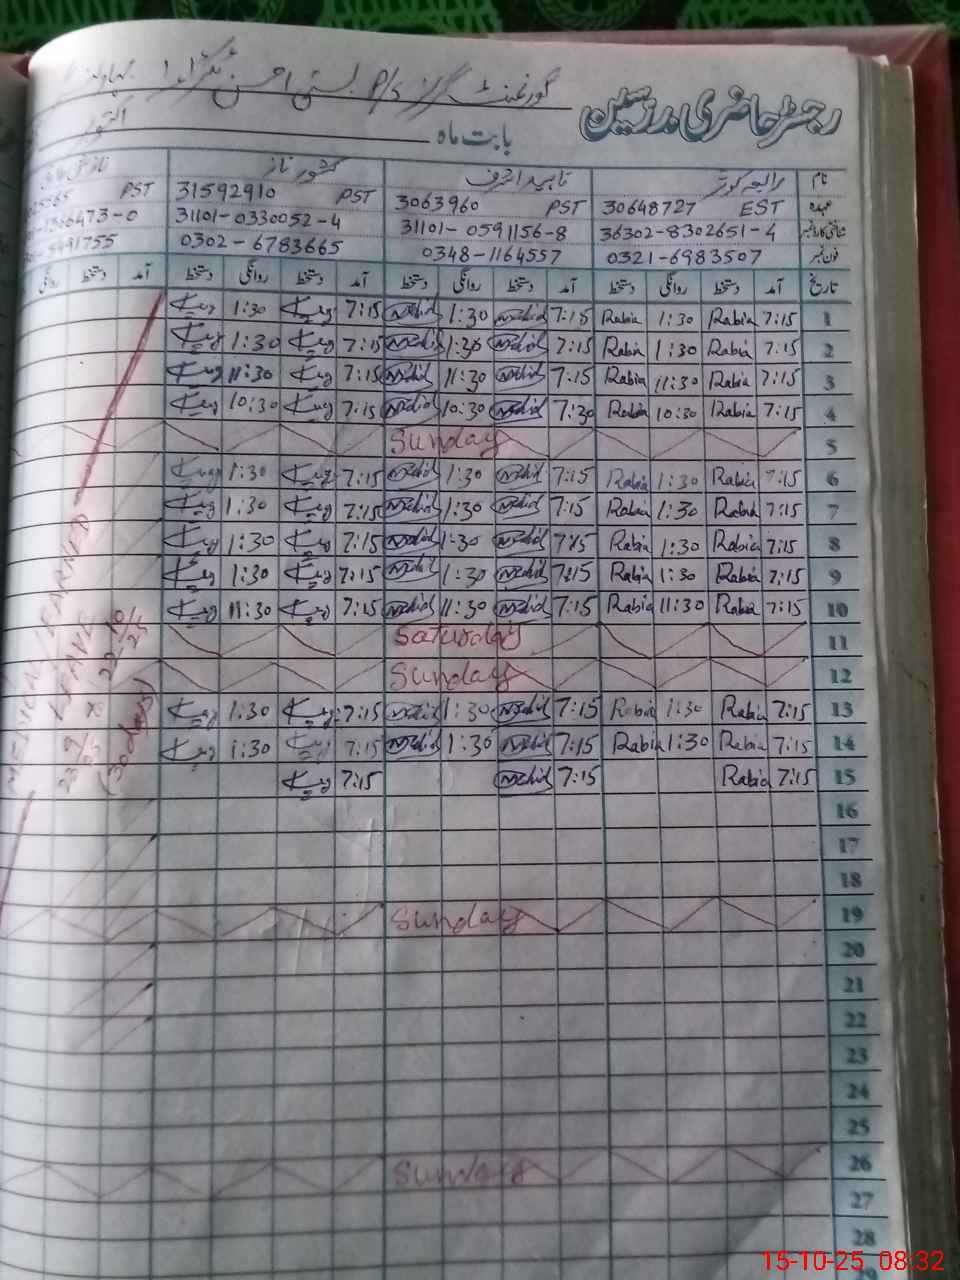 گورنمنٹ گرلز P/S بستی احسن
رجسٹر حاضری مدرسین
بابت ماہ اکتوبر
نام رابعہ کوثر ناہید اشرف کشور ناز
عہدہ EST 30648727 PST 3063960 PST 31592910 PST
شناختی کارڈ نمبر 36302-8302651-4 31101-0591156-8 31101-0330052-4
فون نمبر 0321-6983507 0348-1164557 0302-6783665
تاریخ آمد دستخط روانگی دستخط آمد دستخط روانگی دستخط آمد دستخط روانگی دستخط آمد دستخط روانگی
1 7:15 Rabia 1:30 Rabia 7:15 Nahid 1:30 Nahid 7:15 1:30
2 7:15 Rabia 1:30 Rabia 7:15 Nahid 1:30 Nahid 7:15 1:30
3 7:15 Rabia 11:30 Rabia 7:15 Nahid 11:30 Nahid 7:15 11:30
4 7:15 Rabia 10:30 Rabia 7:30 Nahid 10:30 Nahid 7:15 10:30
5 Sunday
6 7:15 Rabia 1:30 Rabia 7:15 Nahid 1:30 Nahid 7:15 1:30
7 7:15 Rabia 1:30 Rabia 7:15 Nahid 1:30 Nahid 7:15 1:30
8 7:15 Rabia 1:30 Rabia 7:15 Nahid 1:30 Nahid 7:15 1:30
9 7:15 Rabia 1:30 Rabia 7:15 Nahid 1:30 Nahid 7:15 1:30
10 7:15 Rabia 11:30 Rabia 7:15 Nahid 11:30 Nahid 7:15 11:30
11 Saturday
12 Sunday
13 7:15 Rabia 1:30 Rabia 7:15 Nahid 1:30 Nahid 7:15 1:30
14 7:15 Rabia 1:30 Rabia 7:15 Nahid 1:30 Nahid 7:15 1:30
15 7:15 Rabia 7:15 Nahid 7:15
16
17
18
19 Sunday
20
21
22
23
24
25
26 Sunday
27
28
29
EARNED
LEAVE
(30 days)
15-10-25 08:32